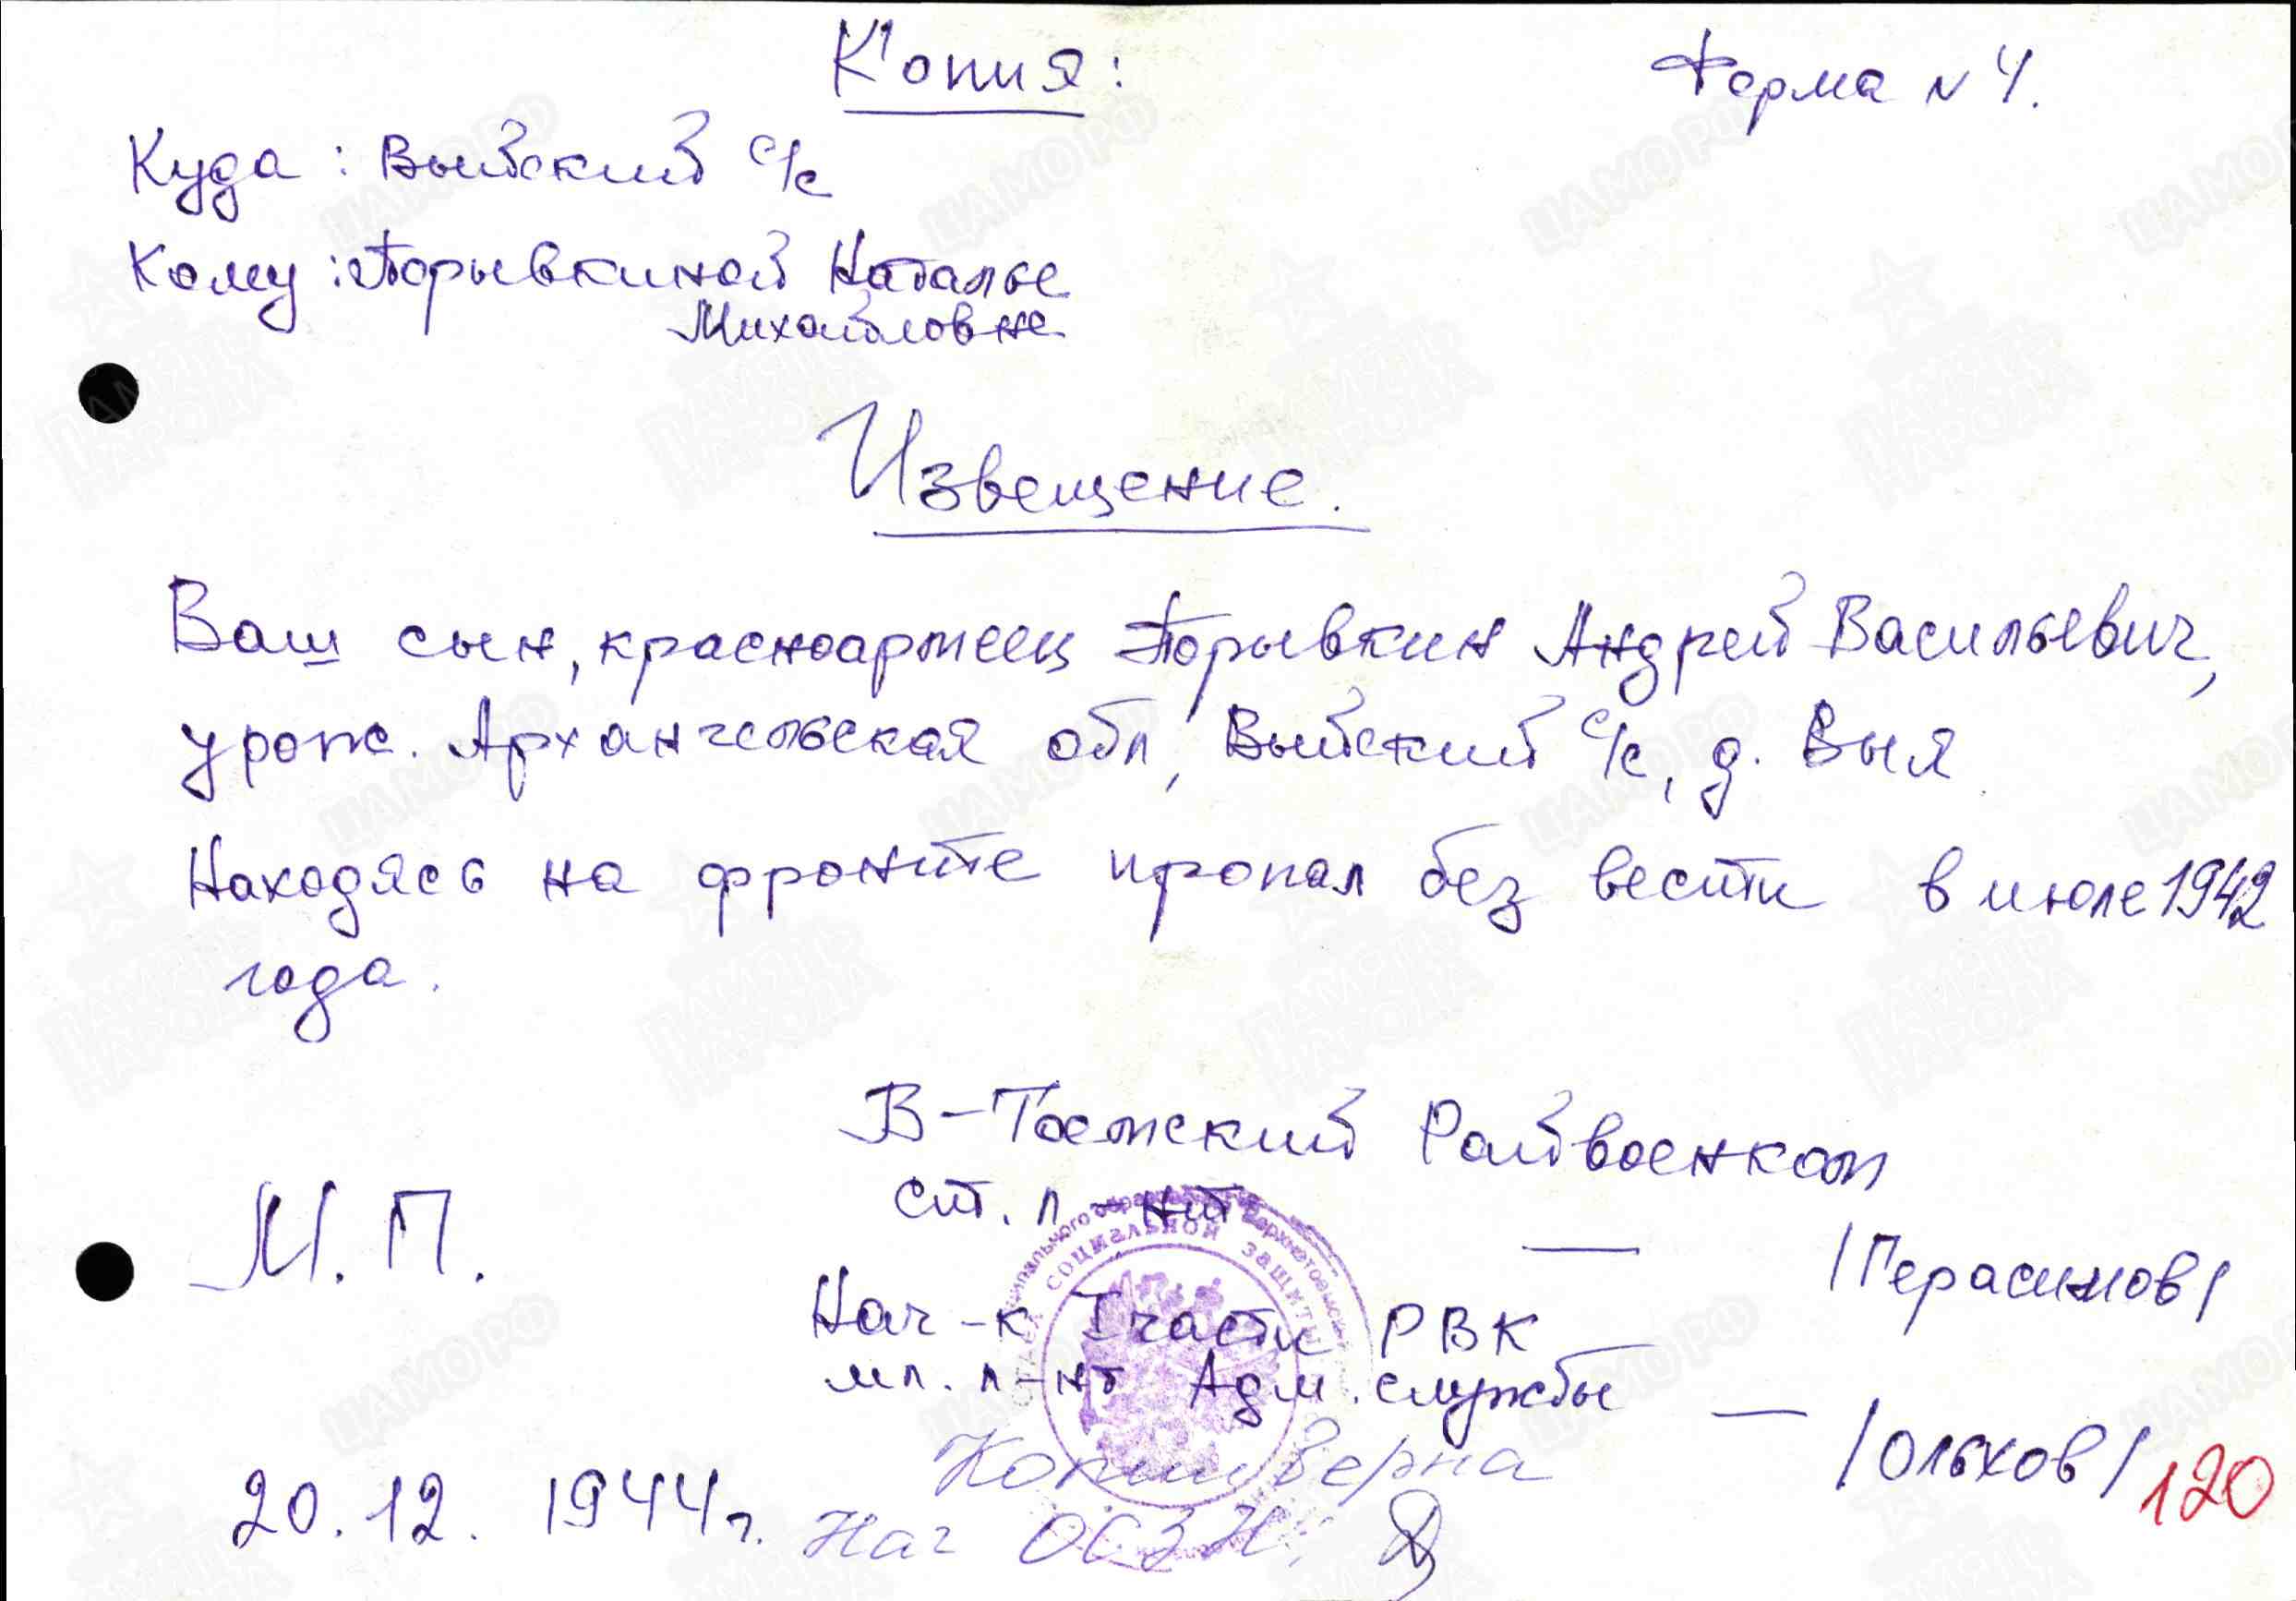 Копия:
Форма N 4.
Куда: Выйский с/с
Кому: Порывкиной Наталье
Михайловне
Извещение.
Ваш сын, красноармеец Порывкин Андрей Васильевич,
урож. Архангельская обл, Выйский с/с, д. Выя
Находясь на фронте пропал без вести в июле 1942
года.
В-Тоемский Райвоенком
ст. л-нт — /Герасимов/
М.П.
Нач-к I части РВК
мл. л-нт Адм. службы — /Ольхов/
120
Копия Верна
20.12. 1944г. Нач ОСЗН:
СОЦИАЛЬНОЙ ЗАЩИТЫ
ЦАМО РФ
ПАМЯТЬ НАРОДА